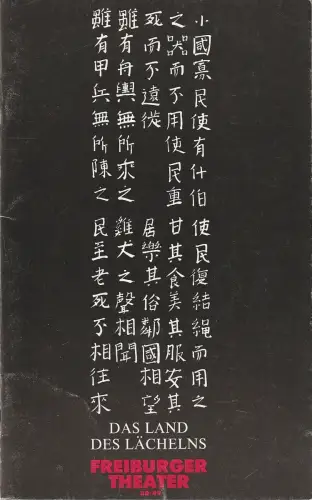 小國寡民使有什伯
之器而不用使民重
死而不遠徙
雖有舟輿無所乘之
雖有甲兵無所陳之
使民復結繩而用之
甘其食美其服安其
居樂其俗鄰國相望
雞犬之聲相聞
民至老死不相往來
DAS LAND
DES LÄCHELNS
FREIBURGER
THEATER
88/89